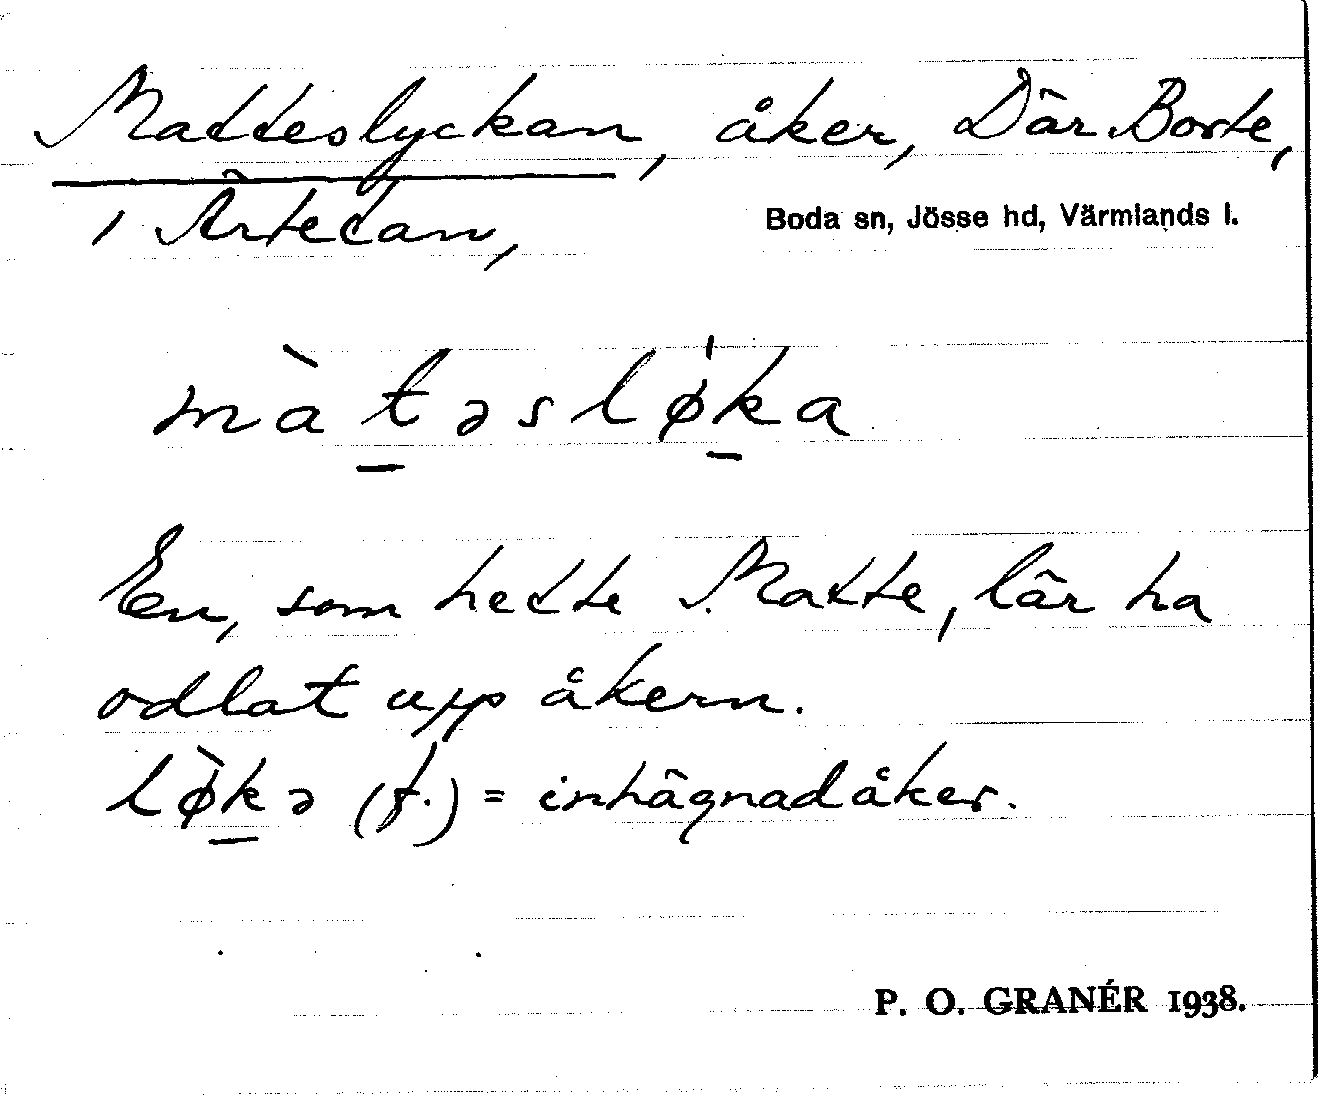 Matteslyckan, åker, Där Borte,
i Ärtetan,
Boda sn, Jösse hd, Värmlands l.
màt̲əslø̍k̲a
En, som hette Matte, lär ha
odlat upp åkern.
lø̀k̲ə (f.) = inhägnad åker.
P. O. GRANÉR 1938.